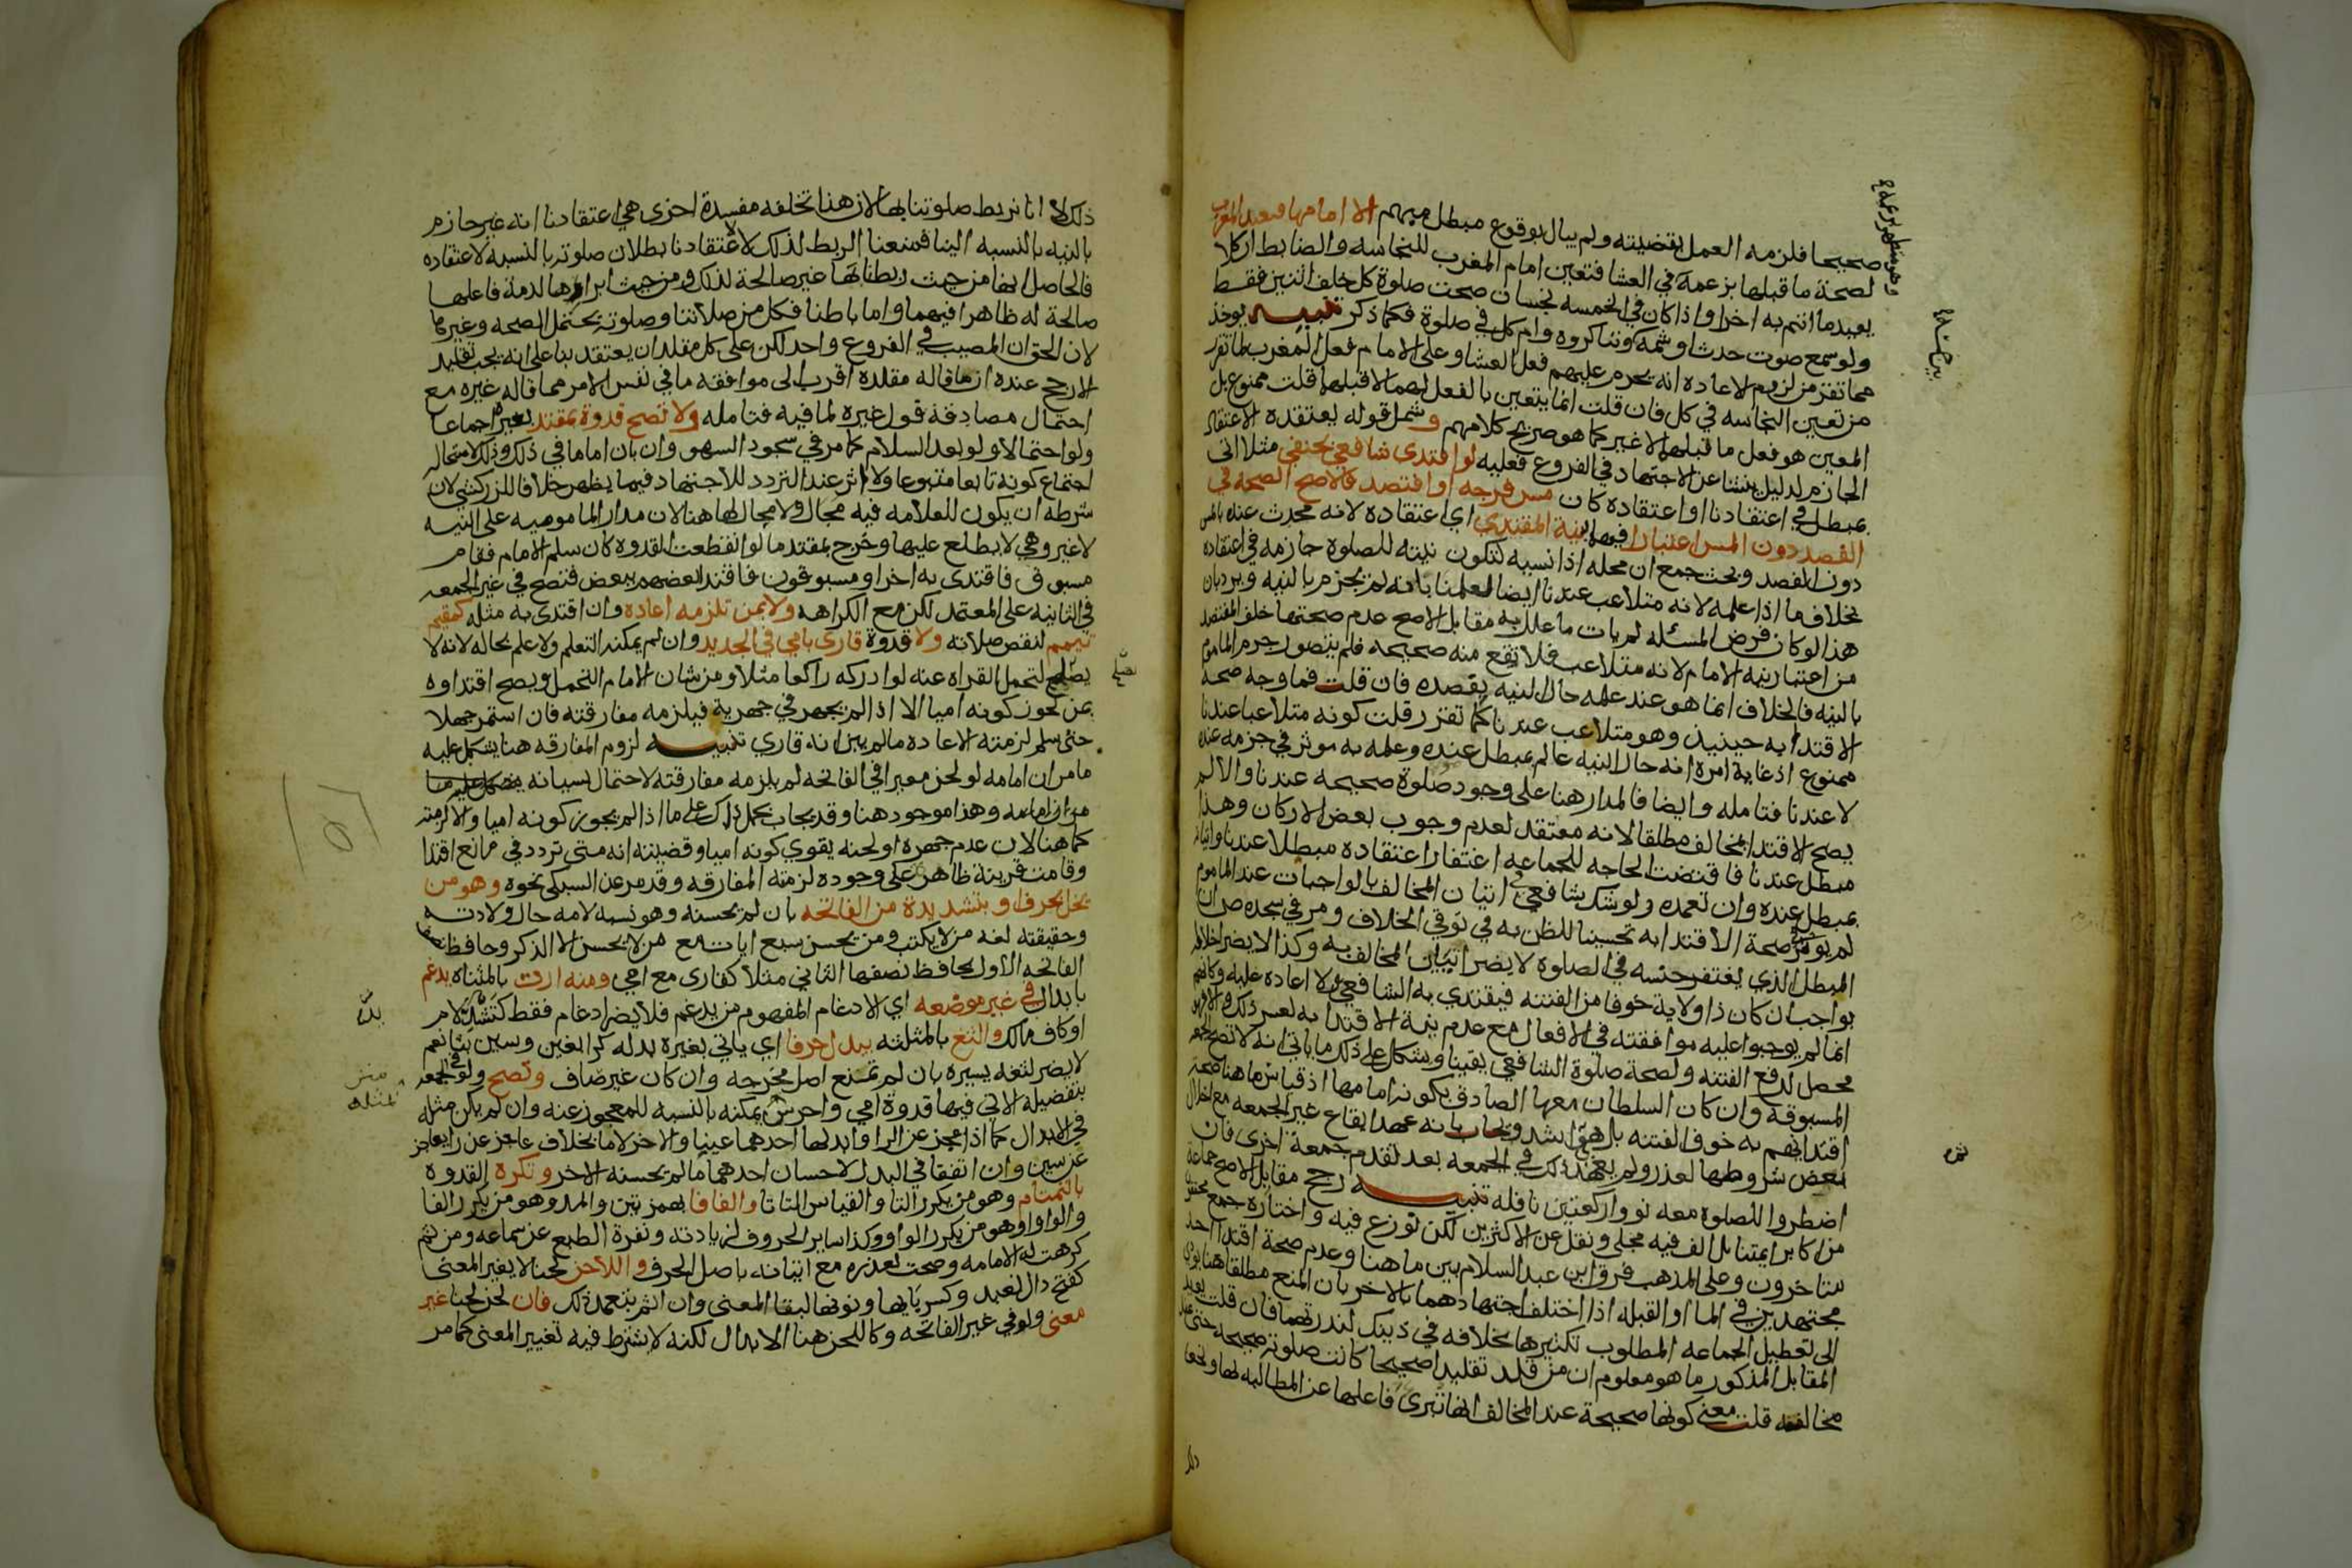 صحيحا فلزمه العمل بقضيته ولم يبال بوقوع مبطل مبهم الا امامها فيعيد المغرب
لصحة ما قبلها بزعمه في العشا فتعين امام المغرب للنجاسه والضابط ان كلا
يعيد ما ائتم به اخرا واذا كان في الخمسه نجسان صحت صلوة كل خلف اثنين فقط
ولو سمع صوت حدث او شمه وتناكروه وام كل في صلوة فكما ذكر تنبيه يوخذ
مما تقرر من لزوم الاعاده انه يحرم عليهم فعل العشا وعلى الامام فعل المغرب لما تقرر
من تعين النجاسه في كل فان قلت انما يتعين بالفعل لهما لا قبلها قلت ممنوع بل
المعين هو فعل ما قبلها لا غير كما هو صريح كلامهم وشمل قوله يعتقده الاعتقاد
الجازم لدليل ينشا عن الاجتهاد في الفروع فعليه لو اقتدى شافعي بحنفي مثلا اتى
بمبطل في اعتقادنا او اعتقاده كان مس فرجه او افتصد فالاصح الصحه في
الفصد دون المس اعتبارا فيهما بنية المقتدي اي اعتقاده لانه محدث عنده بالمس
دون الفصد وبحث جمع ان محله اذا نسيه لتكون نيته للصلوة جازمه في اعتقاده
بخلاف ما اذا علمه لانه متلاعب عندنا ايضا لعلمنا بانه لم يجزم بالنيه ويرد بان
هذا لو كان فرض المسئله لم يات ما علل به مقابل الاصح عدم صحتها خلف المفتصد
من اعتبار نية الامام لانه متلاعب فلا تقع منه صحيحه فلم يتصور جزم الماموم
بالنيه فالخلاف انما هو عند علمه حال النيه بفصده فان قلت فما وجه صحة
الاقتدا به حينيذ وهو متلاعب عندنا كما تقرر قلت كونه متلاعبا عندنا
ممنوع اذ غاية امره انه حال النيه عالم بمبطل عنده وعلمه به موثر في جزمه عنده
لا عندنا فتامله وايضا فالمدار هنا على وجود صلوة صحيحه عندنا والا لم
يصح الاقتدا بمخالف مطلقا لانه معتقد لعدم وجوب بعض الاركان وهذا
مبطل عندنا فاقتضت الحاجه للجماعه اغتفار اعتقاده مبطلا عندنا واتيانه
بمبطل عنده وان تعمده ولو شك شافعي في اتيان المخالف بالواجبات عند الماموم
لم يوثر في صحة الاقتدا به تحسينا للظن به في توقي الخلاف ومر في سجده ص ان
المبطل الذي يغتفر جنسه في الصلوة لا يضر اتيان المخالف به وكذا لا يضر اخلاله
بواجب ان كان ذا ولاية خوفا من الفتنه فيقتدي به الشافعي ولا اعاده عليه وكانهم
انما لم يوجبوا عليه موافقته في الافعال مع عدم نية الاقتدا به لعسر ذلك
محصل لدفع الفتنه ولصحة صلوة الشافعي يقينا ويشكل على ذلك ما ياتي انه لا تصح الجمعه
المسبوقه وان كان السلطان معها الصادق بكونه امامها اذ قياس ما هنا صحة
اقتدائهم به خوف الفتنه بل هي اشد ويجاب بانه عهد ايقاع غير الجمعه مع اخلال
بعض شروطها لعذر ولم يعهد ذلك في الجمعه بعد تقدم جمعة اخرى فان
اضطروا للصلوة معه نووا ركعتين نافله تنبيه رجح مقابل الاصح جماعة
من اكابر ايمتنا بل الف فيه مجلي ونقل عن الاكثرين لكن نوزع فيه واختاره جمع محققون
متاخرون وعلى المذهب فرق ابن عبد السلام بين ما هنا وعدم صحة اقتدا احد
مجتهدين في الما او القبله اذا اختلف اجتهادهما بالاخر بان المنع مطلقا هنا يودي
الى تعطيل الجماعه المطلوب تكثيرها بخلافه في ذينك لندرتهما فان قلت يويد
المقابل المذكور ما هو معلوم ان من قلد تقليدا صحيحا كانت صلوته صحيحه حتى عند
مخالفه قلت معنى كونها صحيحة عند المخالف انها تبرى فاعلها عن المطالبه بها ونحو
ذلك لا انا نربط صلوتنا بها لان هنا تخلفه مفسدة اخرى هي اعتقادنا انه غير جازم
بالنيه بالنسبه الينا فمنعنا الربط لذلك لا لاعتقادنا بطلان صلوته بالنسبه لاعتقاده
فالحاصل انها من حيث ربطنا بها غير صالحة لذلك ومن حيث ابراوها لذمة فاعلها
صالحة له ظاهرا فيهما واما باطنا فكل من صلاتنا وصلوته يحتمل الصحه وغيرها
لان الحق ان المصيب في الفروع واحد لكن على كل مقلد ان يعتقد بنا على انه يجب تقليد
الارجح عنده ان ما قاله مقلده اقرب الى موافقه ما في نفس الامر مما قاله غيره مع
احتمال مصادفة قول غيره لما فيه فتامله ولا تصح قدوة بمقتد بغيره اجماعا
ولو احتمالا ولو بعد السلام كما مر في سجود السهو وان بان اماما في ذلك وذلك لاستحاله
اجتماع كونه تابعا متبوعا ولا اثر عند التردد للاجتهاد فيما يظهر خلافا للزركشي لان
شرطه ان يكون للعلامه فيه مجال ولا مجال لها هنا لان مدار المامومیه على النيه
لا غير وهي لا يطلع عليها وخرج بمقتد ما لو انقطعت القدوه كان سلم الامام فقام
مسبوق فاقتدى به اخر او مسبوقون فاقتدا بعضهم ببعض فتصح في غير الجمعه
في الثانيه على المعتمد لكن مع الكراهه ولا بمن تلزمه اعاده وان اقتدى به مثله كمقيم
تيمم لنقص صلاته ولا قدوة قاري بامي في الجديد وان لم يمكنه التعلم ولا علم بحاله لانه لا
يصلح لتحمل القراه عنه لو ادركه راكعا مثلا ومن شان الامام التحمل ويصح اقتداوه
بمن يجوز كونه اميا الا اذا لم يجهر في جهرية فيلزمه مفارقته فان استمر جهلا
حتى سلم لزمته الاعاده ما لم يبن انه قاري تنبيه لزوم المفارقه هنا يشكل عليه
ما مر ان امامه لو لحن مغيرا في الفاتحه لم يلزمه مفارقته لاحتمال نسيانه
وهذا موجود هنا وقد يجاب بحمل ذاك على ما اذا لم يجوز كونه اميا والا لزمته
كما هنا لان عدم جهره او لحنه يقوي كونه اميا وقضيته انه متى تردد في مانع اقتدا
وقامت قرينة ظاهرة على وجوده لزمته المفارقه وقد مر عن السبكي نحوه وهو من
يخل بحرف او بتشديدة من الفاتحه بان لم يحسنه وهو نسبه لامه حال ولادته
وحقيقته لغه من لا يكتب ومن يحسن سبع ايات مع من لا يحسن الا الذكر وحافظ نصف
الفاتحه الاول بحافظ نصفها الثاني مثلا كقاري مع امي ومنه ارت بالمثناه يدغم
بابدال في غير موضعه اي الادغام المفهوم من يدغم فلا يضر ادغام فقط كتشديد لام
او كاف مالك والثغ بالمثلثه يبدل حرفا اي ياتي بغيره بدله كرا بغين وسين بثا نعم
لا يضر لثغه يسيره بان لم تمنع اصل مخرجه وان كان غير صاف وتصح ولو في الجمعه
بتفصيله الاتي فيها قدوة امي واخرس بمثله بالنسبه للمعجوز عنه وان لم يكن مثله
في الابدال كما اذا عجز عن الرا وابدلها احدهما غينا والاخر لاما بخلاف عاجز عن را بعاجز
عن سين وان اتفقا في البدل لاحسان احدهما ما لم يحسنه الاخر وتكره القدوه
بالتمتام وهو من يكرر التا والقياس التاتا والفافا بهمزتين والمد وهو من يكرر الفا
والواوا وهو من يكرر الواو وكذا ساير الحروف لزيادته ونفرة الطبع عن سماعه ومن ثم
كرهت له الامامه وصحت لعذره مع اتيانه باصل الحرف واللاحن لحنا لا يغير المعنى
كفتح دال نعبد وكسر بايها ونونها لبقا المعنى وان اثم بتعمد ذلك فان لحن لحنا غير
معنى ولو في غير الفاتحه وكاللحن هنا الابدال لكنه لا يشترط فيه تغيير المعنى كما مر